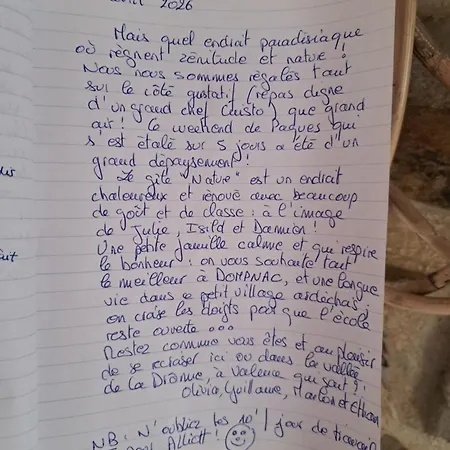 2026
Mais quel endroit paradisiaque
où règnent zénitude et nature !
Nous nous sommes régalés tant
sur le côté gustatif (repas digne
d'un grand chef Cristo) que grand
air ! Ce weekend de Pâques qui
s'est étalé sur 5 jours a été d'un
grand dépaysement !
Le gîte "Nature" est un endroit
chaleureux et rénové avec beaucoup
de goût et de classe : à l'image
de Julie, Isild et Damien !
Une petite famille calme et qui respire
le bonheur : on vous souhaite tout
le meilleur à DOMPNAC, et une longue
vie dans ce petit village ardéchois ;
on croise les doigts pour que l'école
reste ouverte ...
Restez comme vous êtes et au plaisir
de se recroiser ici ou dans la vallée
de la Drôme, à Valence qui sait ?!
Olivia, Guillaume, Marlon et
NB : N'oubliez les 10' / jour de
Alliett !